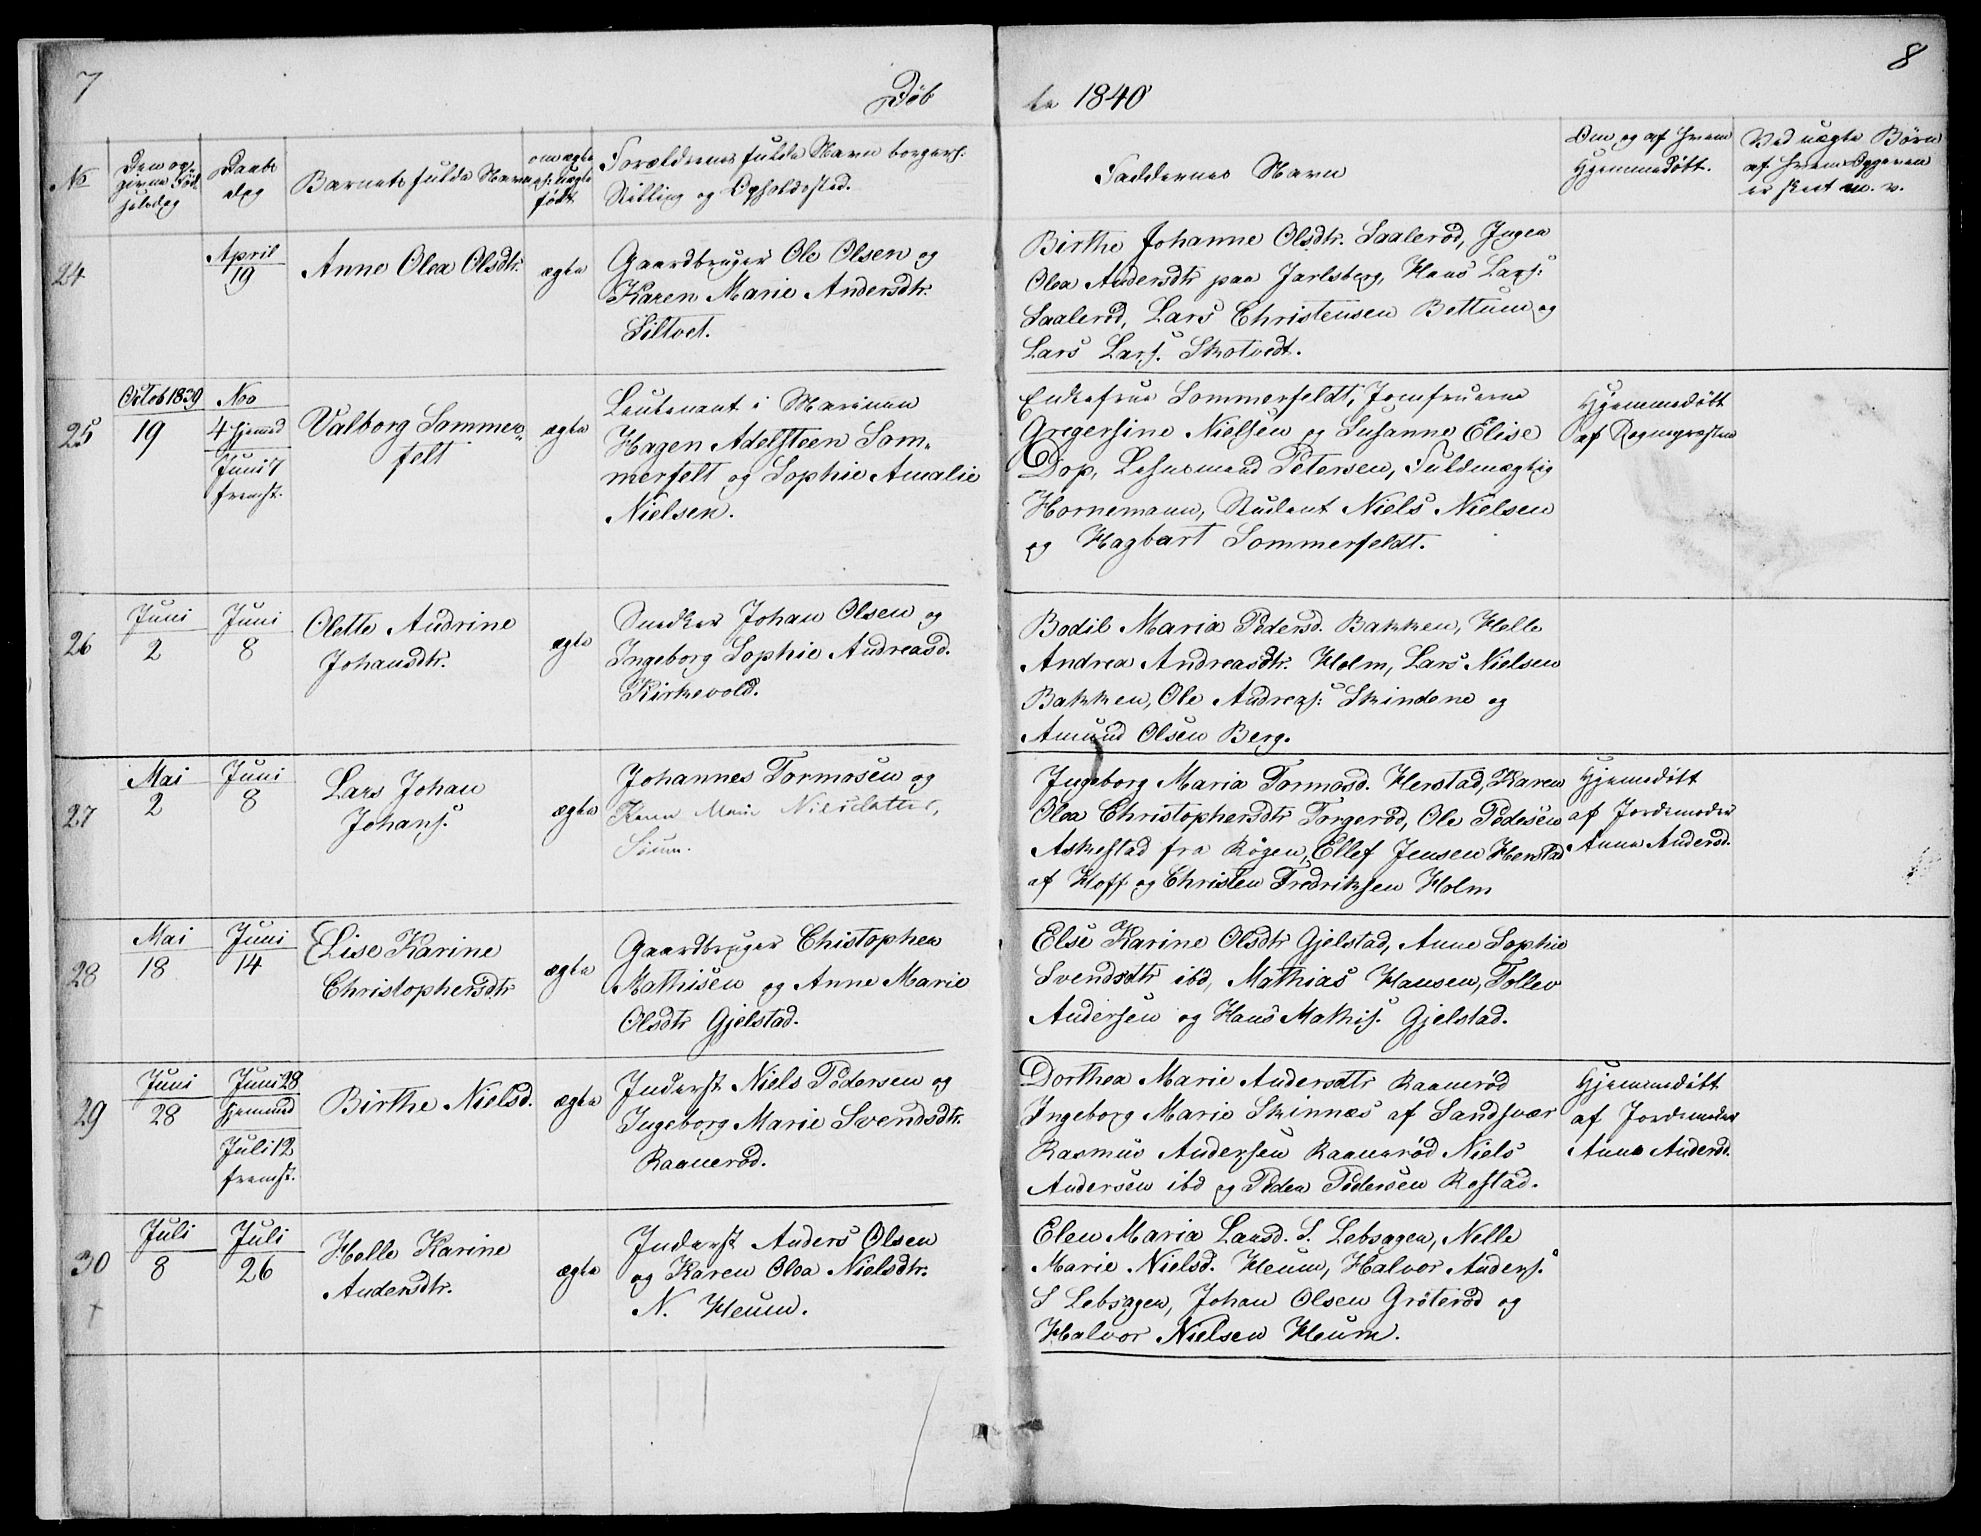 7
Døbte 1840
8
No
Den opgivne Fødselsdag
Daabsdag
Barnets fulde Navn
om ægte el. uægte født.
Forældrenes fulde Navn borgerl.
Stilling og Opholdssted.
Faddernes Navn
Om og af hvem
Hjemmedøbt.
Ved uægte Børn
af hvem Opgaven
er skeet m. v.
24
April
19
Anne Olea Olsdtr.
ægte
Gaardbruger Ole Olsen og
Karen Marie Andersdtr.
Siltvet.
Birthe Johanne Olsdtr. Saalerød, Ingen
Olea Andersdtr paa Jarlsberg, Hans Lars:
Saalerød, Lars Christensen Bettum og
Lars Lars. Skotvedt.
25
Octob 1839
19
No
4 hjemmed
Juni 7
fremst.
Valborg Sommer-
felt
ægte
Leutenant i Marinen
Hagen Adelsteen Som-
merfelt og Sophie Amalie
Nielsen.
Enkefrue Sommerfeldt, Jomfruerne
Gregersine Nielsen og Susanne Elise
Dop, Lehnsmand Petersen, Fuldmægtig
Hornemann, Student Niels Nielsen
og Hagbart Sommerfeldt.
Hjemmedøbt
af Sognepræsten
26
Juni
2
Juni
8
Olette Andrine
Johansdtr.
ægte
Snedker Johan Olsen og
Ingeborg Sophie Andreasd.
Kirkevold.
Bodil Maria Pedersd. Bakken, Helle
Andrea Andreasdtr. Holm, Lars Nielsen
Bakken, Ole Andreas: Skindene og
Amund Olsen Berg.
27
Mai
2
Juni
8
Lars Johan
Johans.
ægte
Johannes Tormosen og
Karen Marie Nielsdatter,
Ingeborg Maria Tormosd. Herstad, Karen
Olea Christophersdtr Torgerød, Ole Pedesen
Askestad fra Røgen, Ellef Jensen Herstad
af Hoff og Christen Fredriksen Holm
Hjemmedøbt
af Jordemoder
Anna Andersd.
28
Mai
18
Juni
14
Elise Karine
Christophersdtr
ægte
Gaardbruger Chistopher
Mathisen og Anne Marie
Olsdtr Gjelstad.
Else Karine Olsdtr Gjelstad, Anne Sophie
Svendsdtr ibd, Mathias Hansen, Tollev
Andersen og Hans Mathis. Gjelstad.
29
Juni
28
Juni 28
Hjemmed
Juli 12
fremst.
Birthe Nielsd.
ægte
Inderst Niels Pedersen og
Ingeborg Marie Svendsdtr.
Raanerød.
Dorthea Marie Andersdtr Raanerød
Ingeborg Marie Skinnæs af Sandsvær
Rasmus Andersen Raanerød Niels
Andersen ibd og Peder Pedersen Refstad.
Hjemmedøbt
af Jordemoder
Anna Andersd.
30
+
Juli
8
Juli
26
Helle Karine
Andersdtr.
ægte
Inderst Anders Olsen
og Karen Olea Nielsdtr.
N. Heum.
Elen Maria Larsd. S. Lebsagen, Nelle
Marie Nielsd. Heum, Halvor Anders.
S Lebsagen, Johan Olsen Grøterød og
Halvor Nielsen Heum.